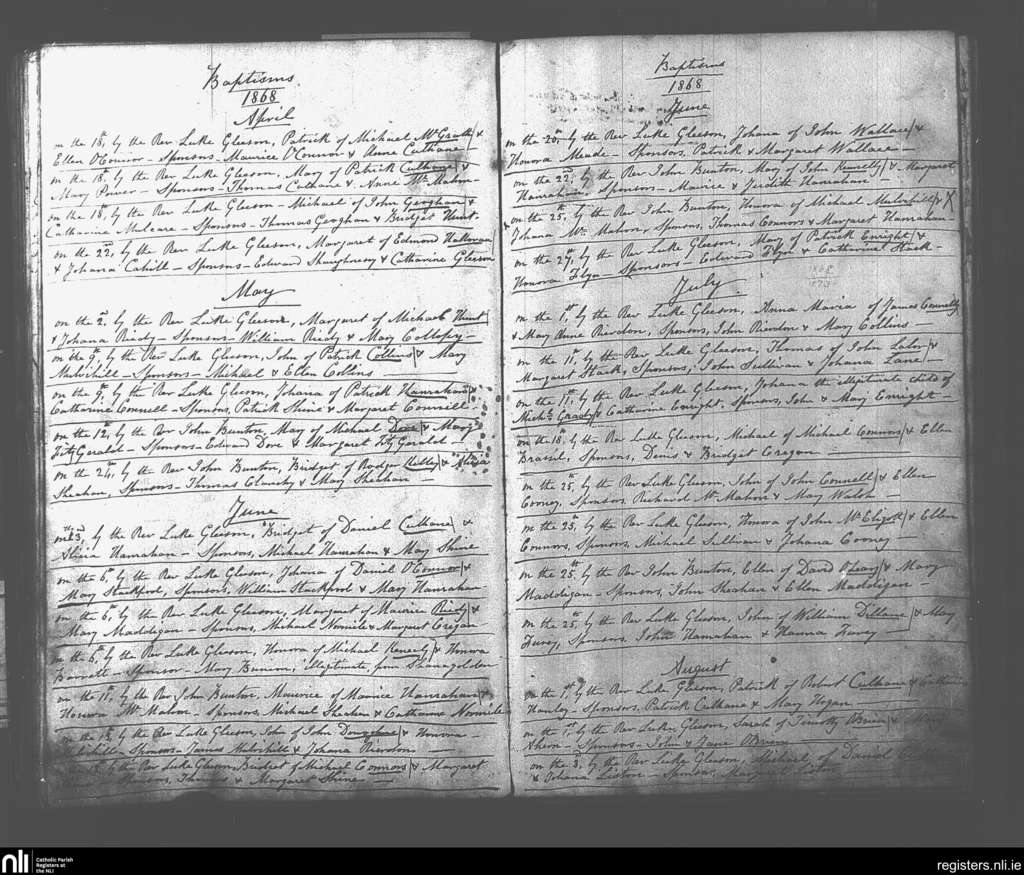 Baptisms
1868
April
on the 18, by the Rev Luke Gleeson, Patrick of Michael McGrath &
Ellen O'Connor - Sponsors - Maurice O'Connor & Anne Culhane
on the 18. by the Rev Luke Gleeson, Mary of Patrick Culhane &
Mary Power - Sponsors - Thomas Culhane & Anne Mc Mahon
on the 18, by the Rev Luke Gleeson - Michael of John Geoghan &
Catharine Mulcare - Sponsors - Thomas Geoghan & Bridget Hunt -
on the 22, by the Rev Luke Gleeson, Margaret of Edmond Halloran
& Johana Cahill - Sponsors - Edward Shaughnessy & Catharine Gleeson
May
on the 2, by the Rev Luke Gleeson, Margaret of Michael Hunt
& Johana Riedy - Sponsors - William Riedy & Mary
on the by the Rev Luke Gleeson, John of Patrick Collins & Mary
Mulvihill - Sponsors - Michael & Ellen Collins
on the 9, by the Rev Luke Gleeson, Johana of Patrick Hanrahan &
Catharine Connell - Sponsors, Patrick Shine & Margaret Connell -
on the 12, by the Rev John Bunton, Mary of Michael Dore & Mary
FitzGerald - Sponsors - Edward Dore & Margaret FitzGerald -
on the 24, by the Rev John Bunton, Bridget of Rodger Kelly & Alicia
Sheahan, Sponsors - Thomas & Mary Sheehan -
June
on the 3, by the Rev Luke Gleeson, Bridget of Daniel Culhane &
Alicia Hanrahan - Sponsors, Michael Hanrahan & Mary Shine
on the 6, by the Rev Luke Gleeson, Johana of Daniel O'Connor &
Mary Stackpool, Sponsors, William Stackpool & Mary Hanrahan
on the 6, by the Rev Luke Gleeson, Margaret of Maurice Riedy &
Mary Maddigan - Sponsors, Michael Normile & Margaret Cregan
on the 6, by the Rev Luke Gleeson, Honora of Michael & Honora
Barrett - Sponsor - Mary illegitimate, from Shanagolden
on the 11, by the Rev John Bunton, Maurice of Maurice Hanrahan &
Honora Mc Mahon - Sponsors, Michael Sheahan & Catharine Normile
on the by the Rev Luke Gleeson, John of John & Honora
Mulvihill - Sponsors - James Mulvihill & Johana Riordon
by the Rev Luke Gleeson, Bridget of Michael Connors & Margaret
Sponsors, Thomas & Margaret Shine -
Baptisms
1868
June
on the 20, by the Rev Luke Gleeson, Johana of John Wallace &
Honora Meade - Sponsors, Patrick & Margaret Wallace -
on the 22, by the Rev John Bunton, Mary of John & Margaret
Hanrahan, Sponsors - Maurice & Judith Hanrahan
on the 25, by the Rev John Bunton, Honora of Michael Mulvihill & X
Johana Mc Mahon, Sponsors, Thomas Connors & Margaret Hanrahan -
on the 27, by the Rev Luke Gleeson, Mary of Patrick Enright &
Honora Flyn - Sponsors - Edward Flyn & Catharine Stack -
July
on the 1st, by the Rev Luke Gleeson, Anna Maria of James Connelly
& Mary Anne Riordon, Sponsors, John Riordon & Mary Collins -
on the 11, by the Rev Luke Gleeson, Thomas of John &
Margaret Stack, Sponsors, John Sullivan & Johana Lane
on the 11, by the Rev Luke Gleeson, Johana the illegitimate child of
Michl Grady & Catharine Enright, Sponsors, John & Mary Enright -
on the 18, by the Rev Luke Gleeson, Michael of Michael Connors & Ellen
Brassil, Sponsors, Denis & Bridget Cregan -
on the 25, by the Rev Luke Gleeson, John of John Connell & Ellen
Cooney, Sponsors, Richard Mc Mahon & Mary Walsh -
on the 25, by the Rev Luke Gleeson, Honora of John McEligott & Ellen
Connors, Sponsors, Michael Sullivan & Johana Cooney -
on the 25, by the Rev John Bunton, Ellen of David O'Leary & Mary
Maddigan - Sponsors, John Sheahan & Ellen Maddigan -
on the 25, by the Rev Luke Gleeson, John of William Dillane & Mary
Furey, Sponsors, John Hanrahan & Hanna Furey -
August
on the 1st, by the Rev Luke Gleeson, Patrick of Robert Culhane & Catharine
Hanley - Sponsors, Patrick Culhane & Mary Hogan -
on the 1, by the Rev Luke Gleeson, Sarah of Timothy O'Brien & Mary
Ahern - Sponsors - John & Jane O'Brien
on the 3, by the Rev Luke Gleeson, Michael of Daniel
& Johana Liston - Sponsors, Margaret Liston
nli
Catholic Parish
Registers at
the NLI
registers.nli.ie